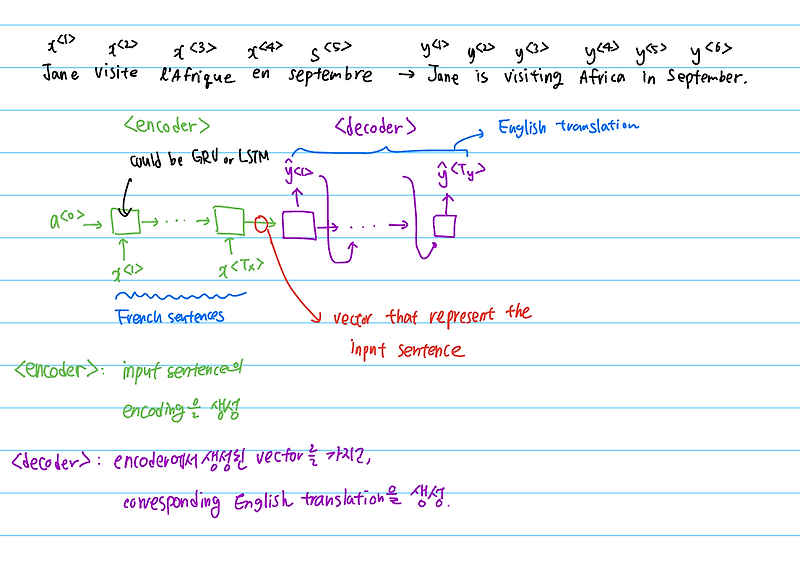 x<1> x<2> x<3> x<4> s<5> y<1> y<2> y<3> y<4> y<5> y<6>
Jane visite l'Afrique en septembre → Jane is visiting Africa in September.
<encoder> <decoder> English translation
could be GRU or LSTM
ŷ<1> ŷ<Ty>
a<0> → → ··· → → → ··· →
x<1> x<Tx>
French sentences
vector that represent the
input sentence
<encoder>: input sentence의
encoding을 생성
<decoder>: encoder에서 생성된 vector를 가지고,
corresponding English translation을 생성.